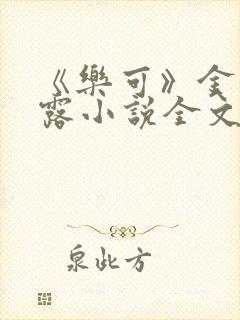 《樂可》金
露小說全文
泉此方